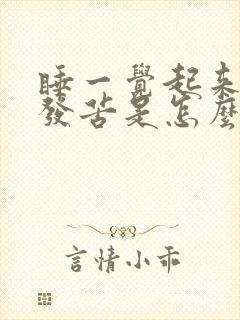 睡一覺起來
發苦是怎麼
言情小乖